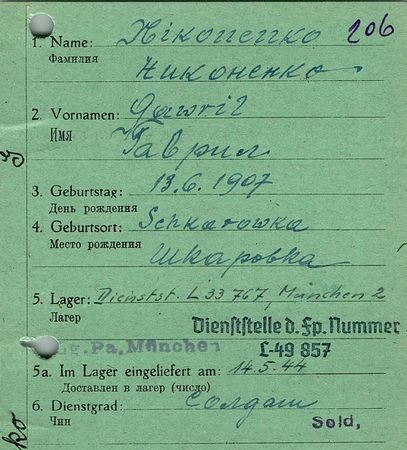 1. Name: Нікопепко 206
Фамилия Никоненко
2. Vornamen: Gawril
Имя Гаврил
3. Geburtstag: 13.6.1907
День рождения
4. Geburtsort: Schkarowka
Место рождения Шкаровка
5. Lager: Dienstst. L 33 767, München 2
Лагерь
Dienststelle d. Fp. Nummer
L-49 857
Pa. München
5a. Im Lager eingeliefert am: 14.5.44
Доставлен в лагерь (число)
6. Dienstgrad: Солдат
Чин Sold,